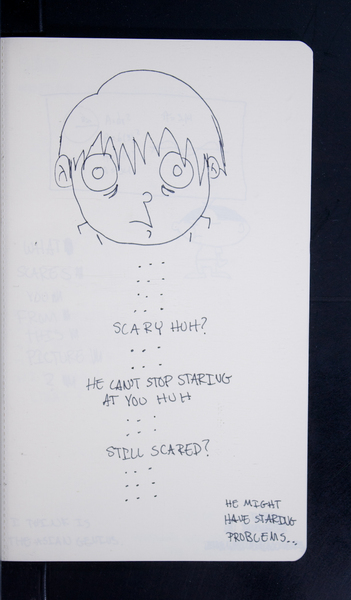 SCARY HUH?
HE CAN'T STOP STARING
AT YOU HUH
STILL SCARED?
HE MIGHT
HAVE STARING
PROBLEMS...